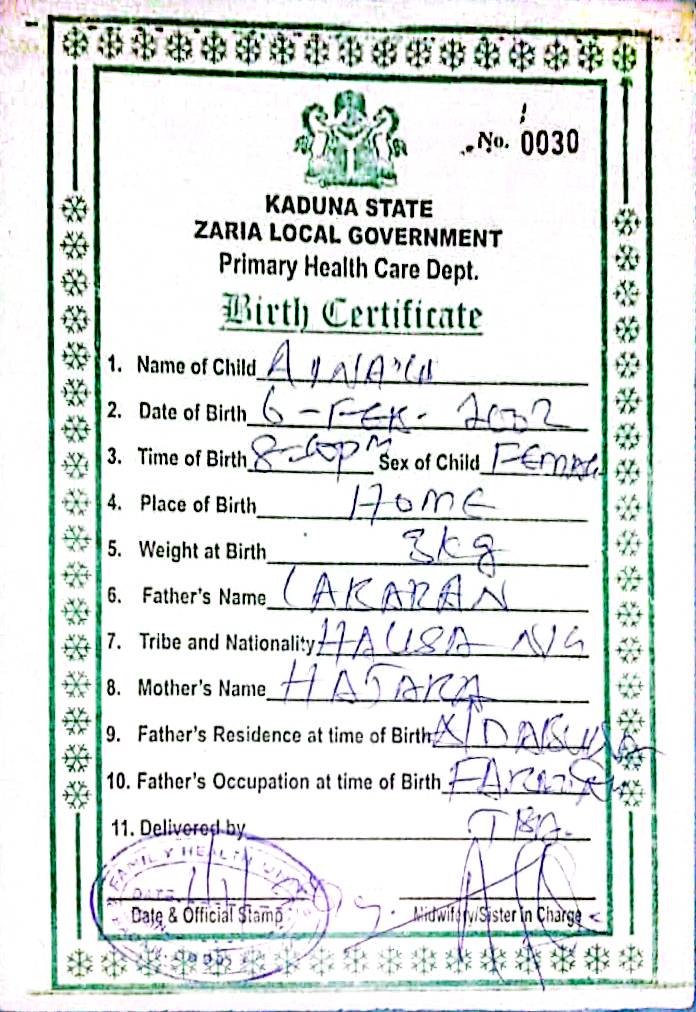 No. 0030
KADUNA STATE
ZARIA LOCAL GOVERNMENT
Primary Health Care Dept.
Birth Certificate
1. Name of Child AINA'U
2. Date of Birth 6-FEB-2002
3. Time of Birth Sex of Child FEMALE
4. Place of Birth HOME
5. Weight at Birth 3kg
6. Father's Name
7. Tribe and Nationality HAUSA NIG
8. Mother's Name HAJARA
9. Father's Residence at time of Birth
10. Father's Occupation at time of Birth FARMER
11. Delivered by TBA.
FAMILY HEALTH
DATE
Date & Official Stamp Midwifery/Sister in Charge